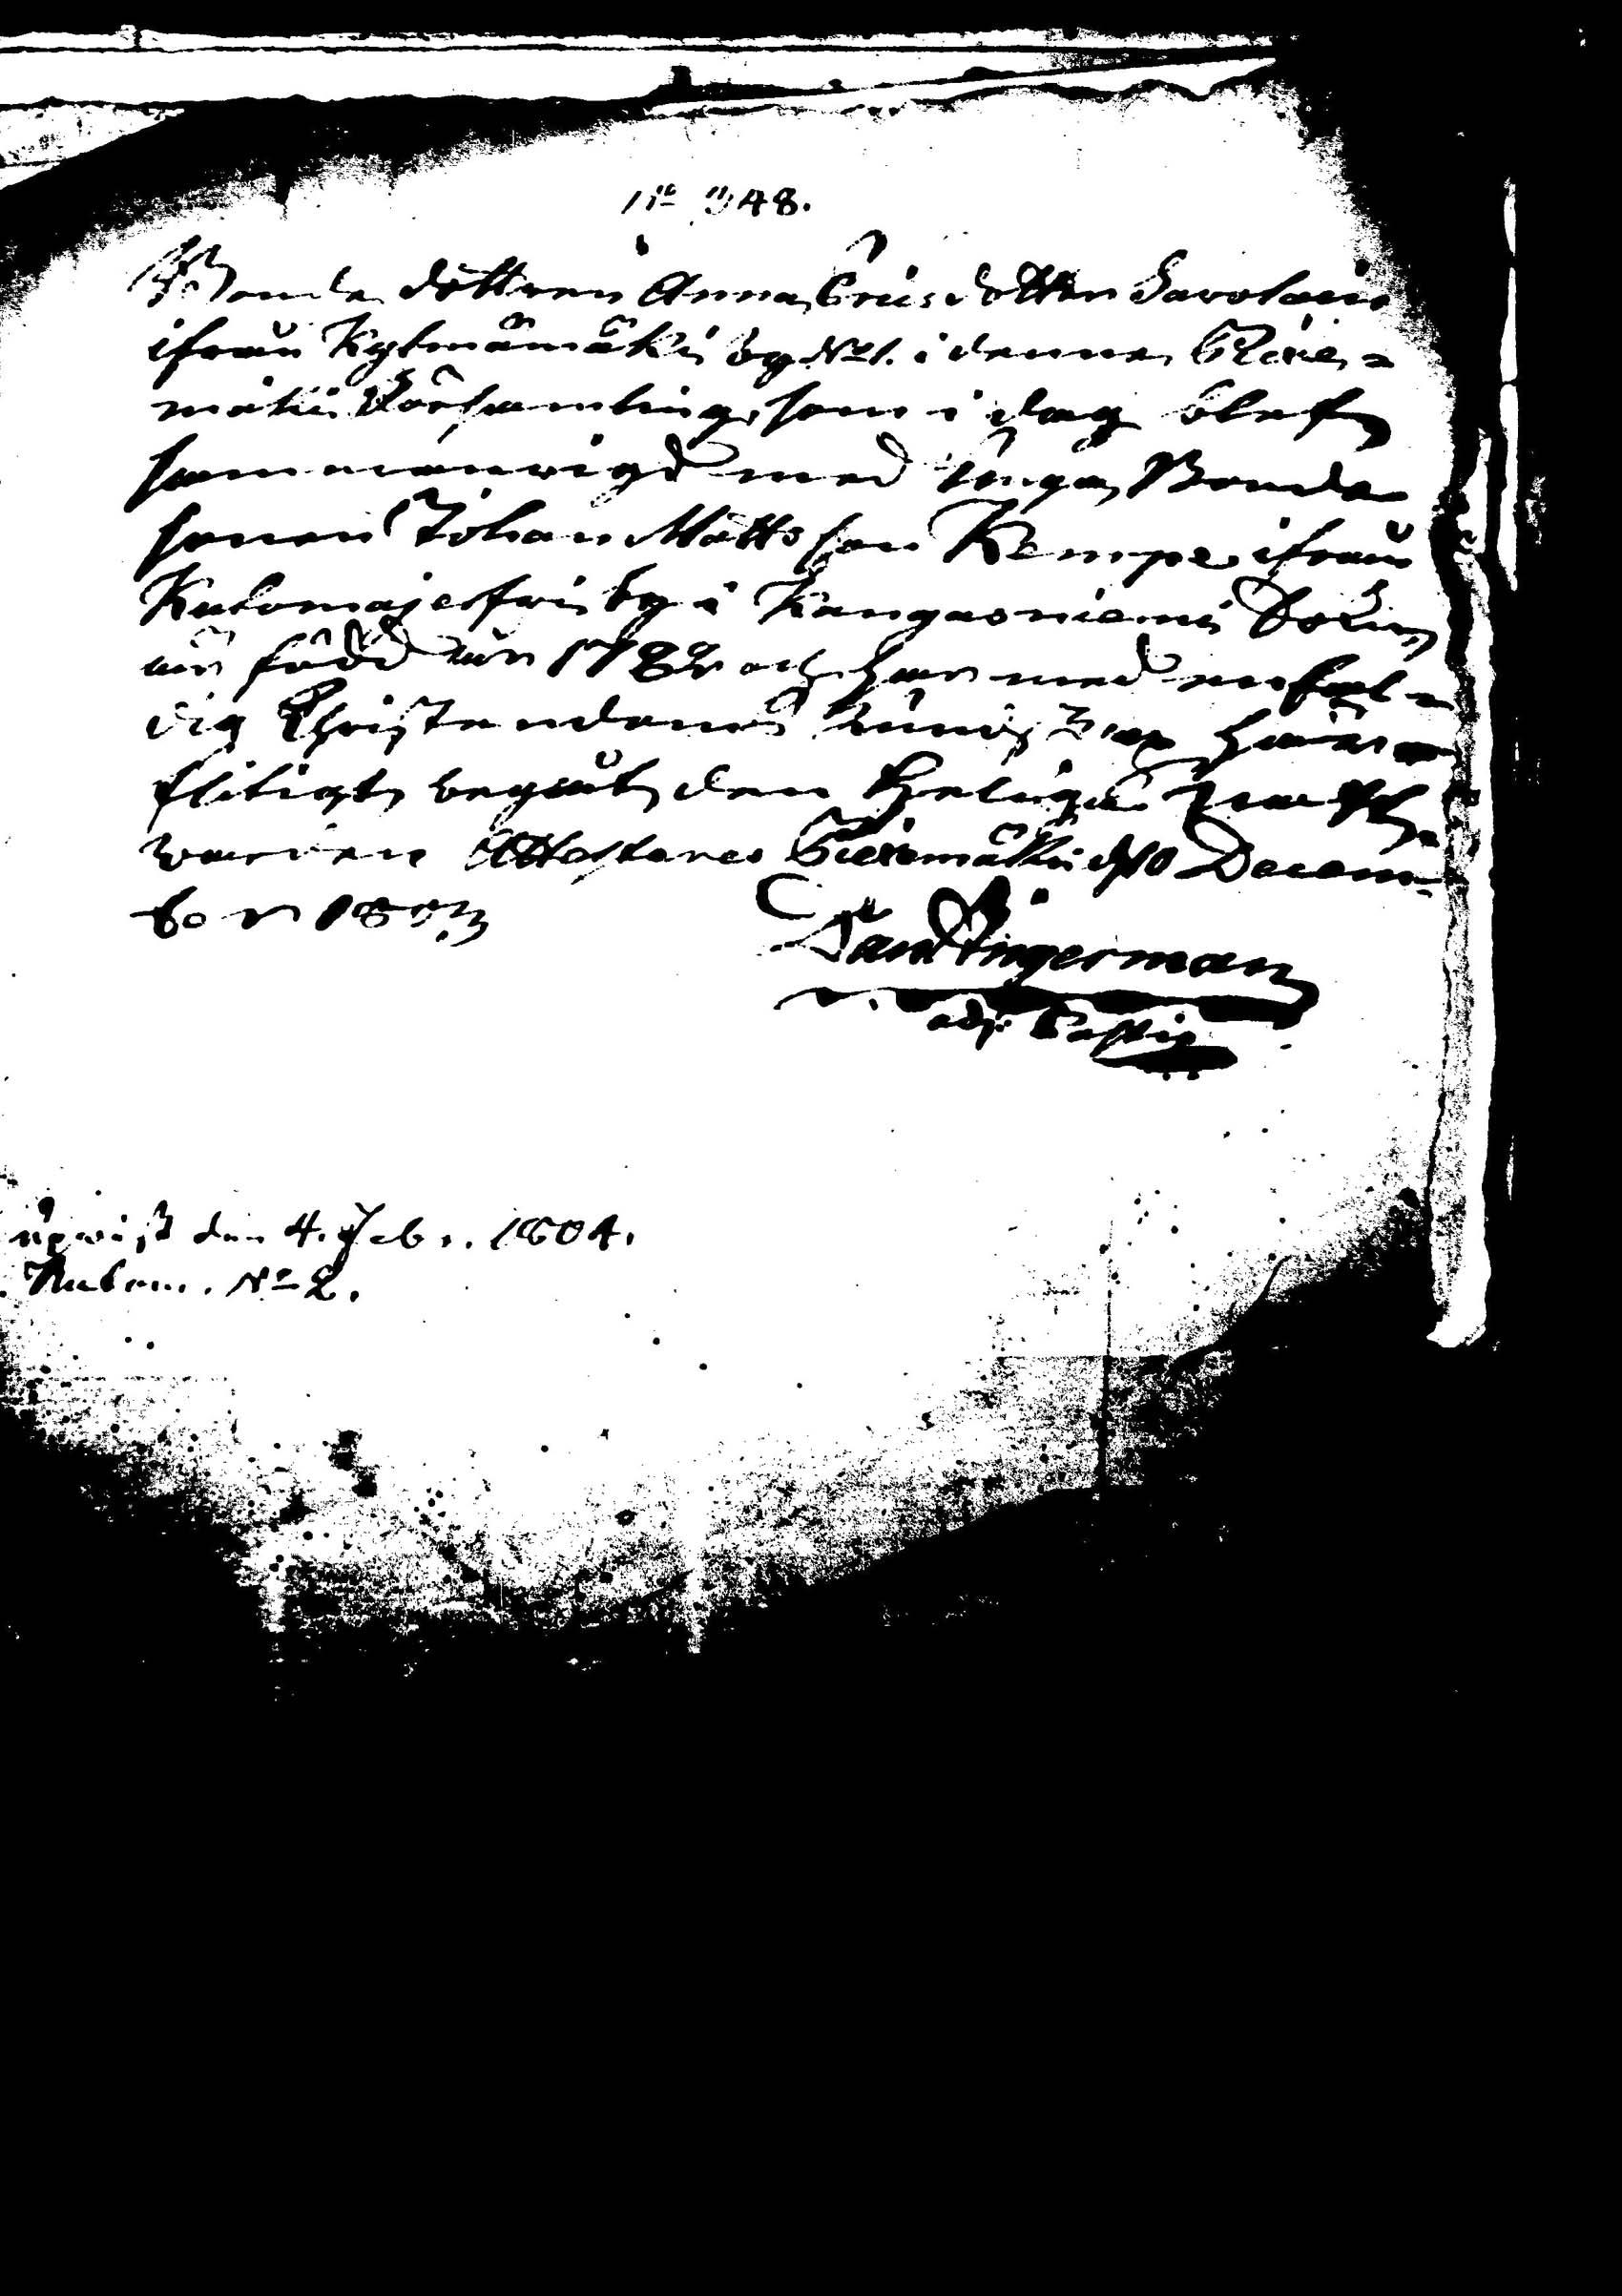 No 348.
Bonde dottren Anna Ericsdotter Savolain
ifrån Kylmämäki by No 1. i denna Piexe=
mäki Församling, som i dag blef
sammanvigd med unga Bonde
sonen Johan Matts son Kempe ifrån
Kutemajerfwi by i Kangasniemi Sokn
är född år 178 och har med enfal=
dig Christendoms kundskap
flitigt begått den Heliga Nattward
warden Attesteras Piexmäki d 10 Decem=
ber 1803
Dan Ingerman
adj: Pastis
upwist den 4. Febr. 1804.
No 2.